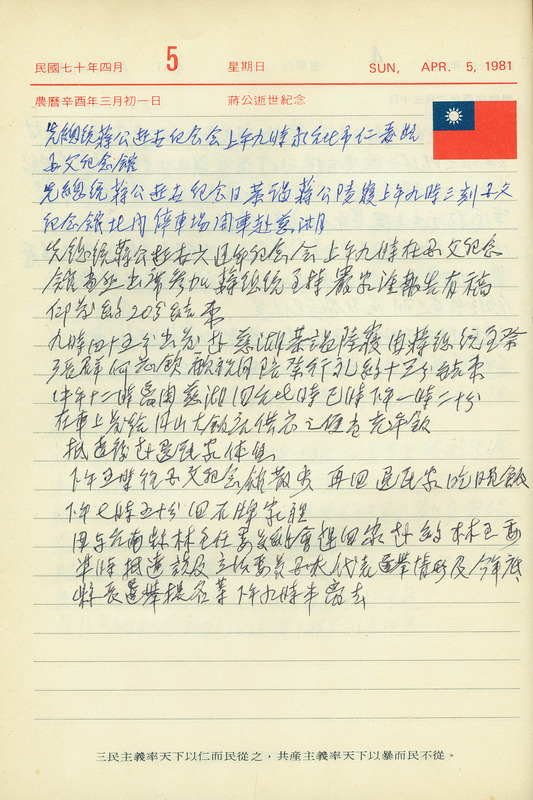 民國七十年四月 5 星期日 SUN, APR. 5, 1981
農曆辛酉年三月初一日 蔣公逝世紀念
先總統蔣公逝世紀念會上午九時於台北市仁愛路
國父紀念館
先總統蔣公逝世紀念日恭謁蔣公陵寢上午九時三刻國父
紀念館北門停車場開車赴慈湖
先總統蔣公逝世六週年紀念會上午九時在國父紀念
館 出席參加 蔣總統主持 嚴家淦報告有稿
約20分結束
九時四十五分出發赴慈湖恭謁陵寢由蔣總統主祭
張群何應欽 陪祭行禮約十五分結束
中午十二時離開慈湖回台北時已時下午一時二十分
在車上發給 供 之便當充午飯
抵達後赴 家休息
下午五時往國父紀念館散步再回 家吃晚飯
下午七時五十分回石牌家裡
因與 林主任委員 會趕回家赴約 林主委
準時抵達談及 委員 代表選舉情形及今年底
縣長選舉提名等下午九時半離去
三民主義率天下以仁而民從之，共產主義率天下以暴而民不從。